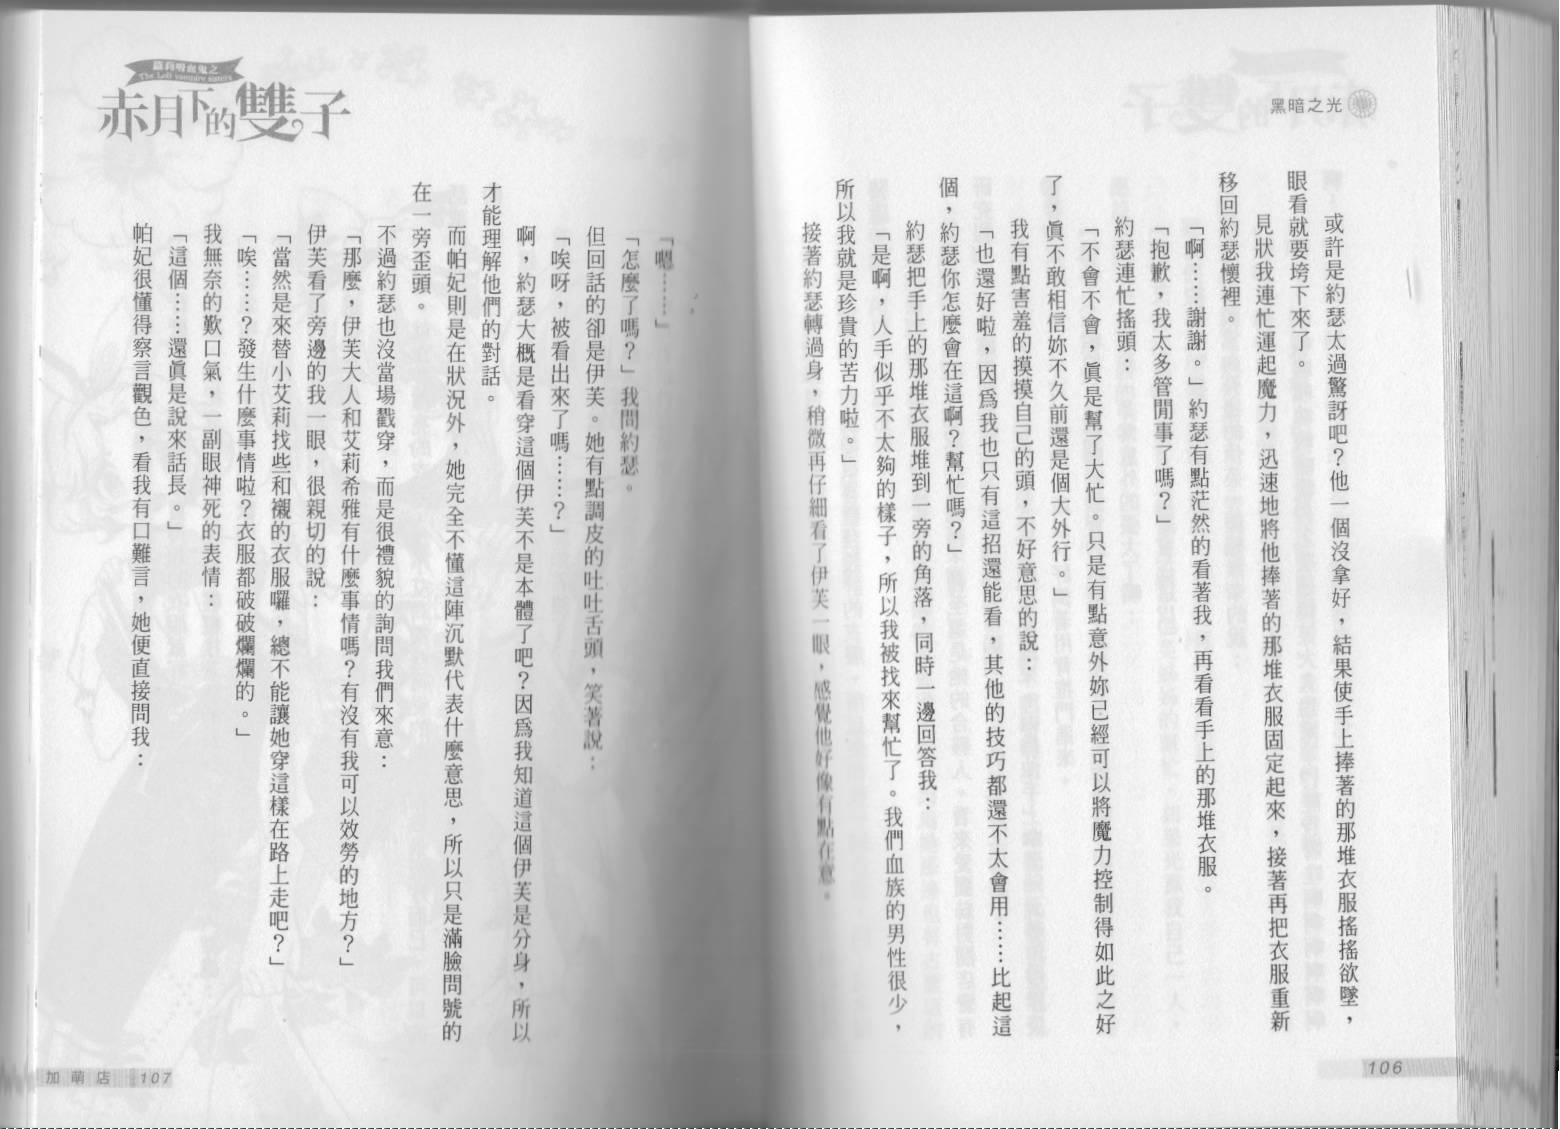 黑暗之光
或許是約瑟太過驚訝吧？他一個沒拿好，結果使手上捧著的那堆衣服搖搖欲墜，
眼看就要垮下來了。
見狀我連忙運起魔力，迅速地將他捧著的那堆衣服固定起來，接著再把衣服重新
移回約瑟懷裡。
「啊……謝謝。」約瑟有點茫然的看著我，再看看手上的那堆衣服。
「抱歉，我太多管閒事了嗎？」
約瑟連忙搖頭：
「不會不會，真是幫了大忙。只是有點意外妳已經可以將魔力控制得如此之好
了，真不敢相信妳不久前還是個大外行。」
我有點害羞的摸摸自己的頭，不好意思的說：
「也還好啦，因為我也只有這招還能看，其他的技巧都還不太會用……比起這
個，約瑟你怎麼會在這啊？幫忙嗎？」
約瑟把手上的那堆衣服堆到一旁的角落，同時一邊回答我：
「是啊，人手似乎不太夠的樣子，所以我被找來幫忙了。我們血族的男性很少，
所以我就是珍貴的苦力啦。」
接著約瑟轉過身，稍微再仔細看了伊芙一眼，感覺他好像有點在意。
106
蘿莉吸血鬼之
The Loli vampire sisters
赤月下的雙子
「嗯……」
「怎麼了嗎？」我問約瑟。
但回話的卻是伊芙。她有點調皮的吐吐舌頭，笑著說：
「唉呀，被看出來了嗎……？」
啊，約瑟大概是看穿這個伊芙不是本體了吧？因為我知道這個伊芙是分身，所以
才能理解他們的對話。
而帕妃則是在狀況外，她完全不懂這陣沉默代表什麼意思，所以只是滿臉問號的
在一旁歪頭。
不過約瑟也沒當場戳穿，而是很禮貌的詢問我們來意：
「那麼，伊芙大人和艾莉希雅有什麼事情嗎？有沒有我可以效勞的地方？」
伊芙看了旁邊的我一眼，很親切的說：
「當然是來替小艾莉找些和襯的衣服囉，總不能讓她穿這樣在路上走吧？」
「唉……？發生什麼事情啦？衣服都破破爛爛的。」
我無奈的歎口氣，一副眼神死的表情：
「這個……還真是說來話長。」
帕妃很懂得察言觀色，看我有口難言，她便直接問我：
加萌店 107